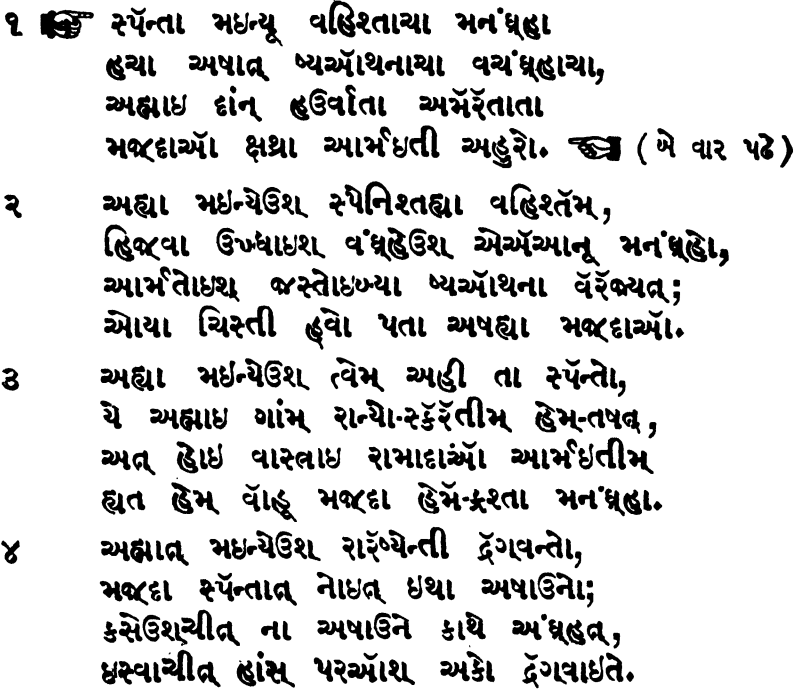 ૧ ☞ સ્પૅન્તા મઇન્યૂ વહિશ્તાચા મનંઘ્હા
હચા અષાત્ ષ્યઑથનાચા વચંઘ્હાચા,
અહ્માઇ દાંન્ હઉર્વાતા અમૅરૅતાતા
મજ઼્દાઑ ક્ષથ્રા આર્મઇતી અહુરો. ☜ (બે વાર પઢે)
૨ અહ્યા મઇન્યેઉશ સ્પેનિશ્તહ્યા વહિશ્તૅમ્,
હિજવા ઉખ્ધાઇશ વંઘ્હેઉશ એઍઆનૂ મનંઘ્હો,
આર્મતોઇશ્ જસ્તોઇબ્યા ષ્યઑથના વૅરૅજ્યત્;
ઓયા ચિસ્તી હ્વો પતા અષહ્યા મજ઼્દાઑ.
૩ અહ્યા મઇન્યેઉશ ત્વેમ્ અહી તા સ્પૅન્તો,
યે અહ્માઇ ગાંમ્ રાન્યો-સ્કૅરૅતીમ્ હેમ્-તષત્,
અત્ હોઇ વાસ્ત્રાઇ રામાદાઑ આર્મઇતીમ્
હ્યત હેમ્ વૉહૂ મજ઼્દા હેમૅ-ફ્રશ્તા મનંઘ્હા.
૪ અહ્માત્ મઇન્યેઉશ રારૅષ્યેન્તી દ્રૅગવન્તો,
મજ઼્દા સ્પૅન્તાત્ નોઇત્ ઇથા અષાઉનો;
કસેઉશ્ચીત્ ના અષાઉને કાથે અંઘ્હત્,
ઇસ્વાચીત્ હાંસ્ પરઑશ અકો દ્રૅગવાઇતે.